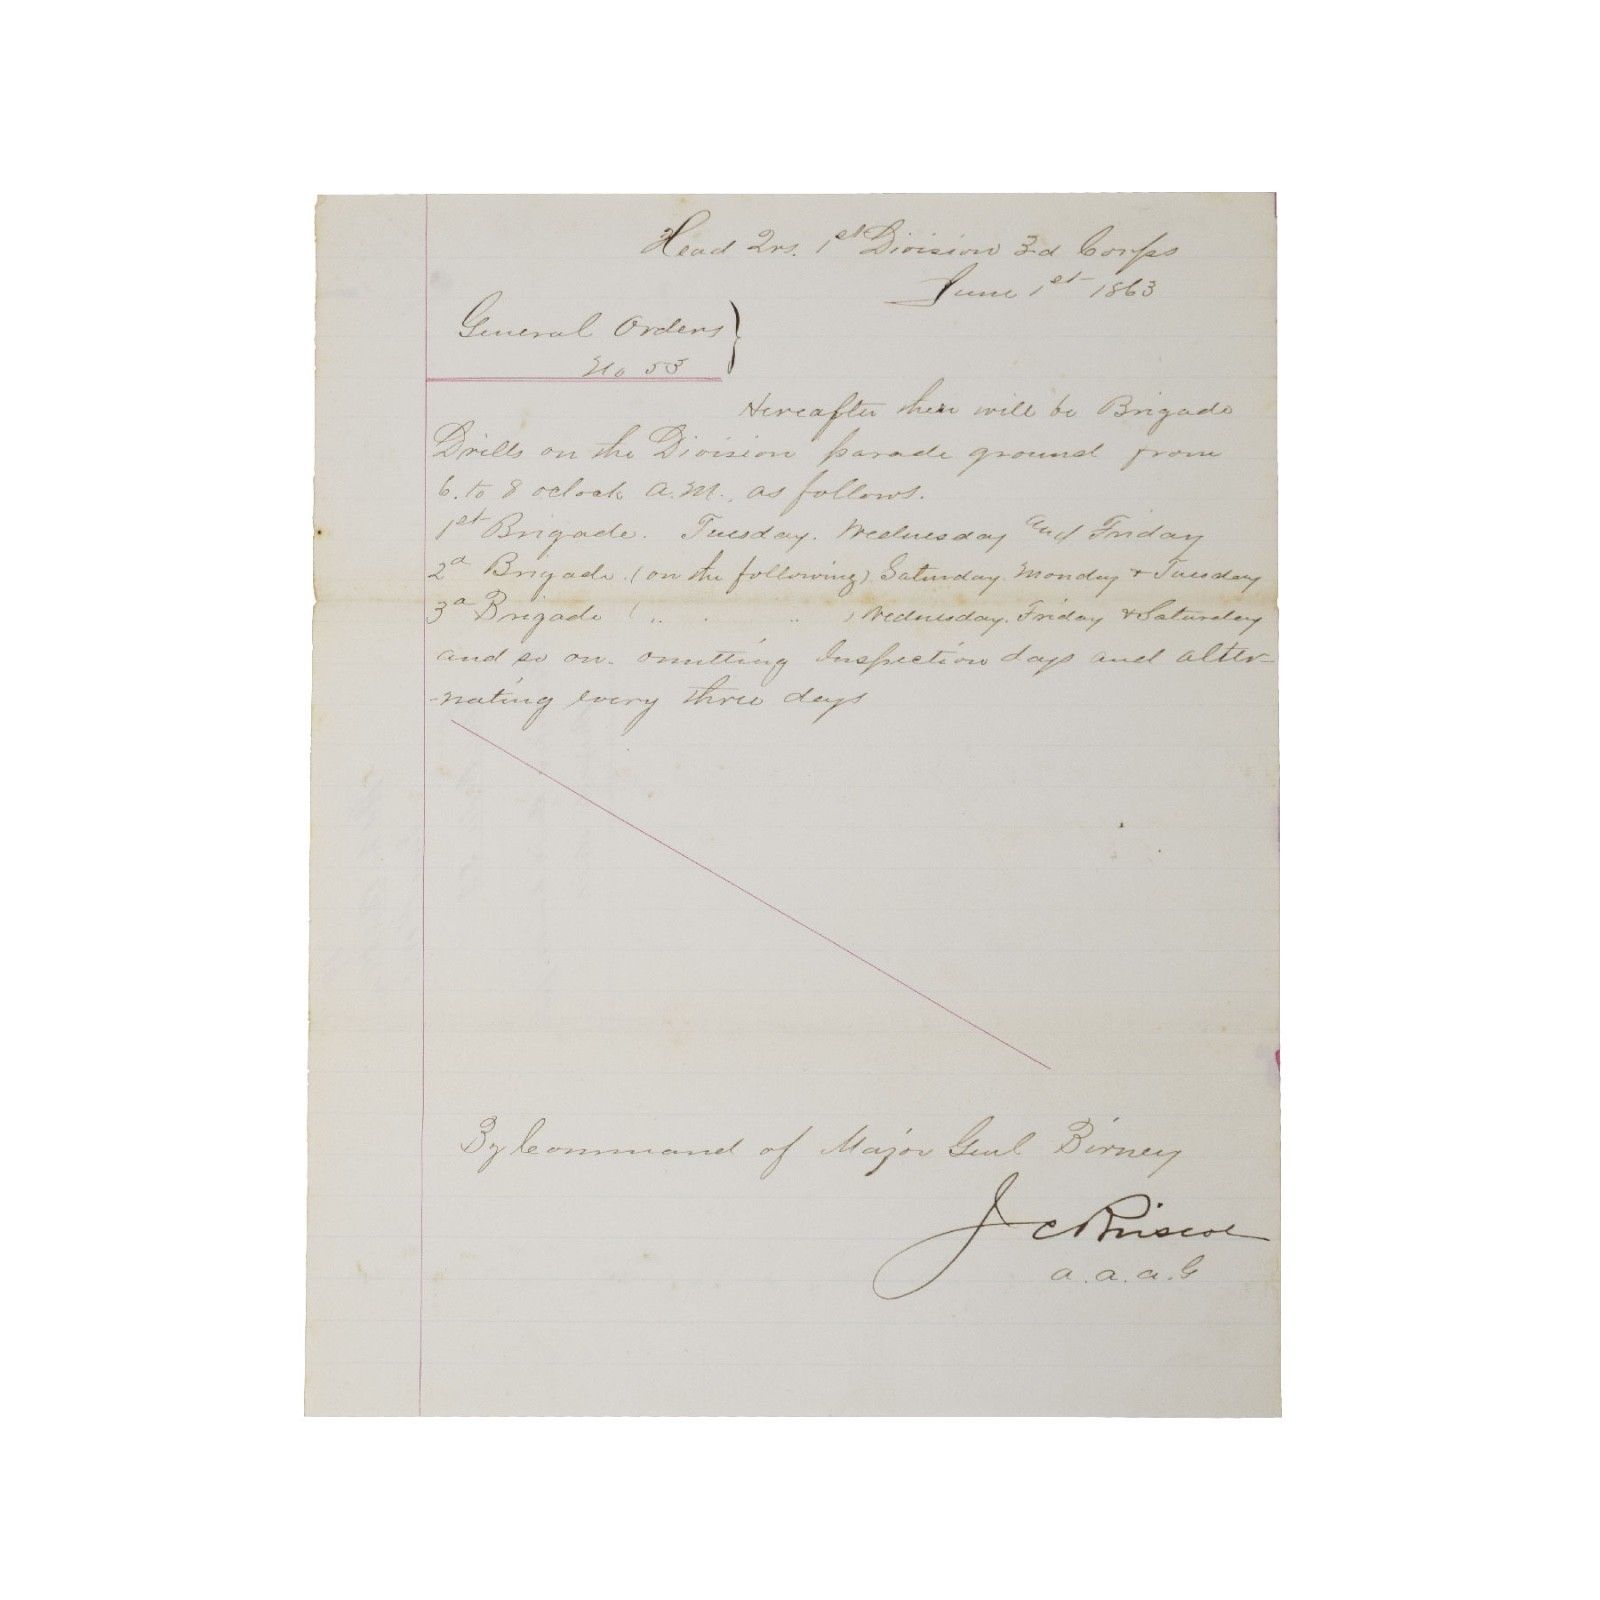 Head Qrs. 1st Division 3d Corps
June 1st 1863
General Orders
No 53
Hereafter there will be Brigade
Drills on the Division parade ground from
6. to 8 oclock A.M., as follows.
1st Brigade. Tuesday. Wednesday and Friday
2d Brigade (on the following) Saturday. Monday & Tuesday
3d Brigade ( " " " ) Wednesday. Friday & Saturday
and so on. omitting Inspection days and alter-
-nating every three days
By Command of Major Genl Birney
J C Briscoe
a.a.a.G